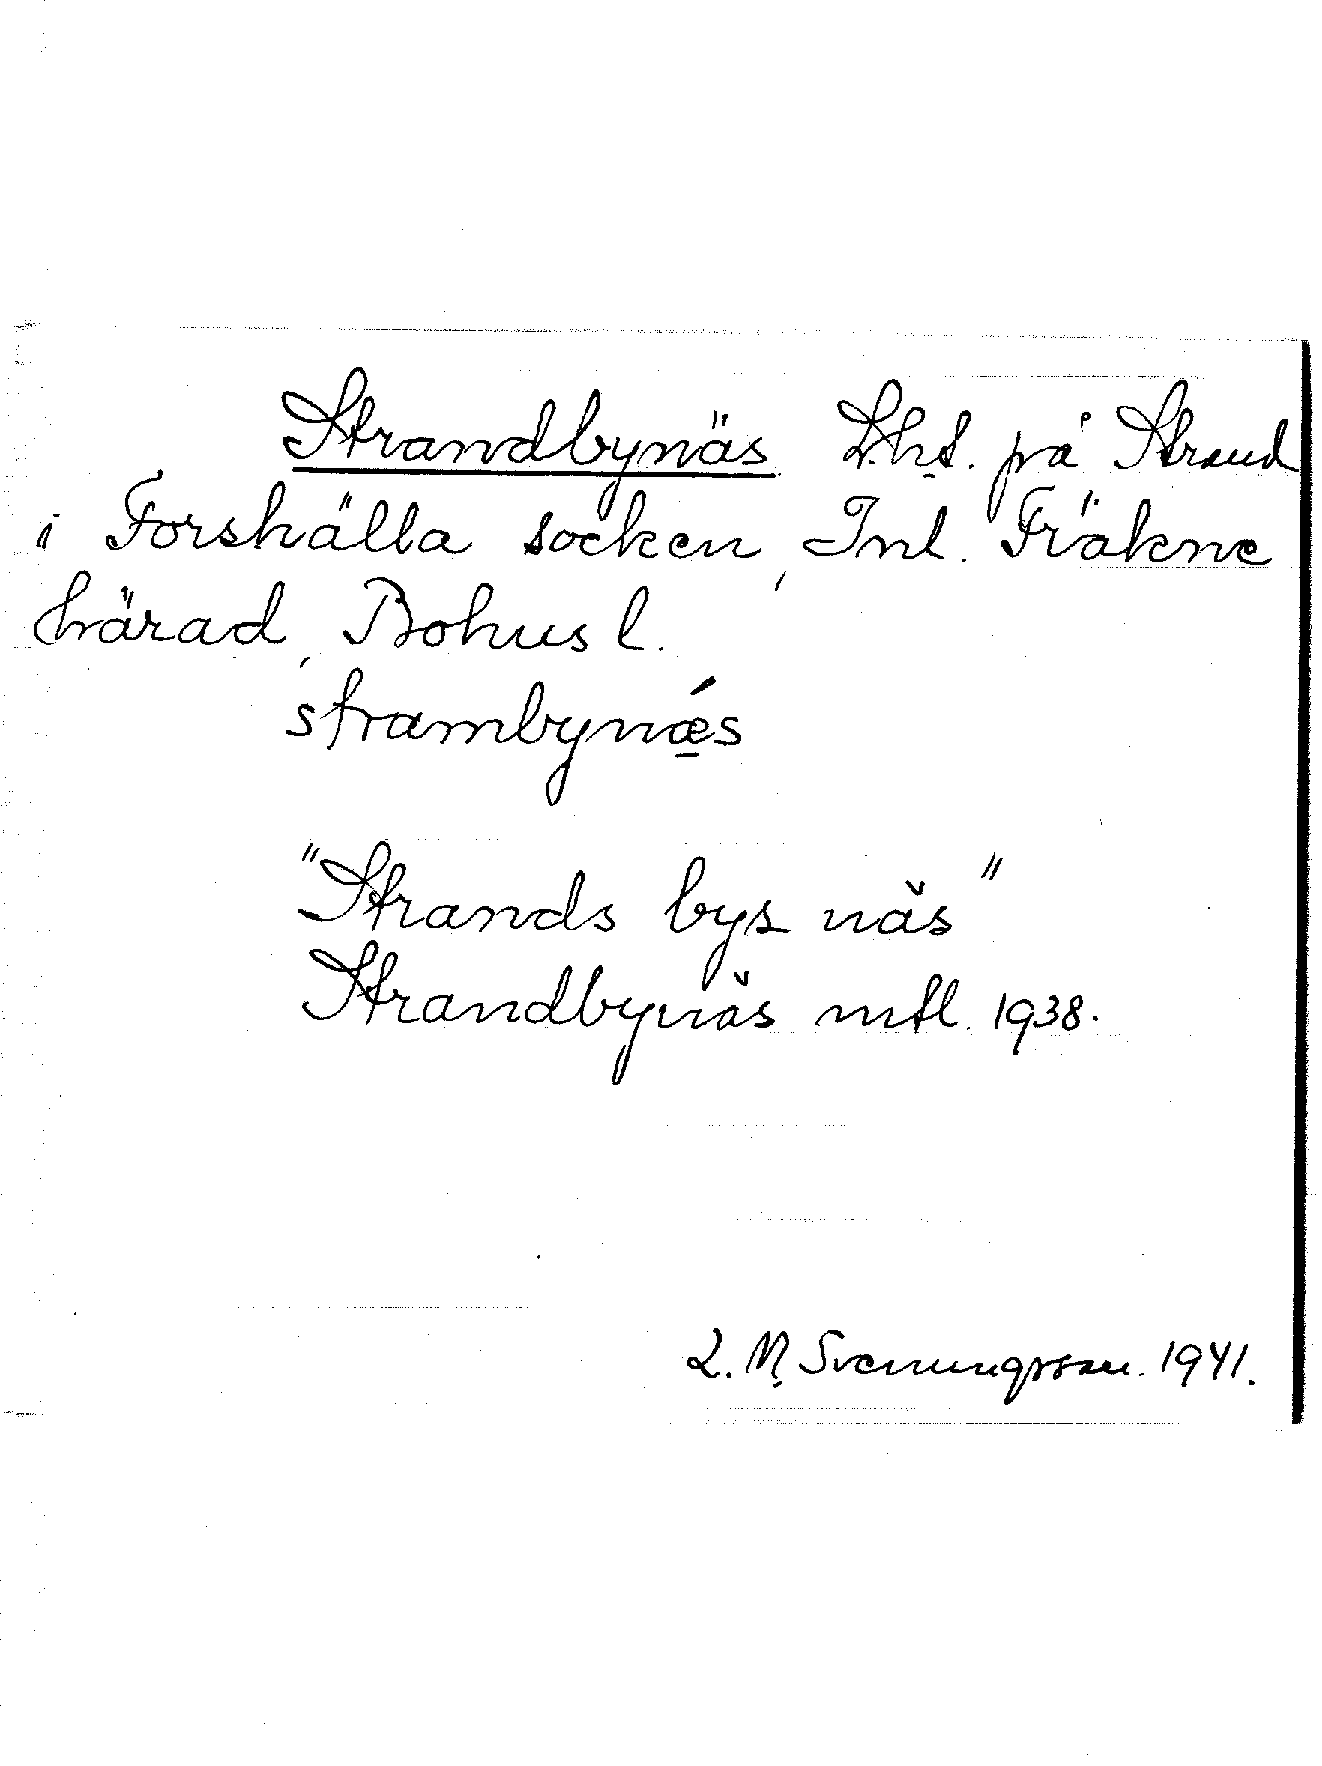 Strandbynäs Lht. på Strand
i Forshälla socken, Inl. Fräkne
härad, Bohus l.
strambynǽ̲s
"Strands bys näs"
Strandbynäs mtl. 1938.
L. M. Svenungsson. 1941.